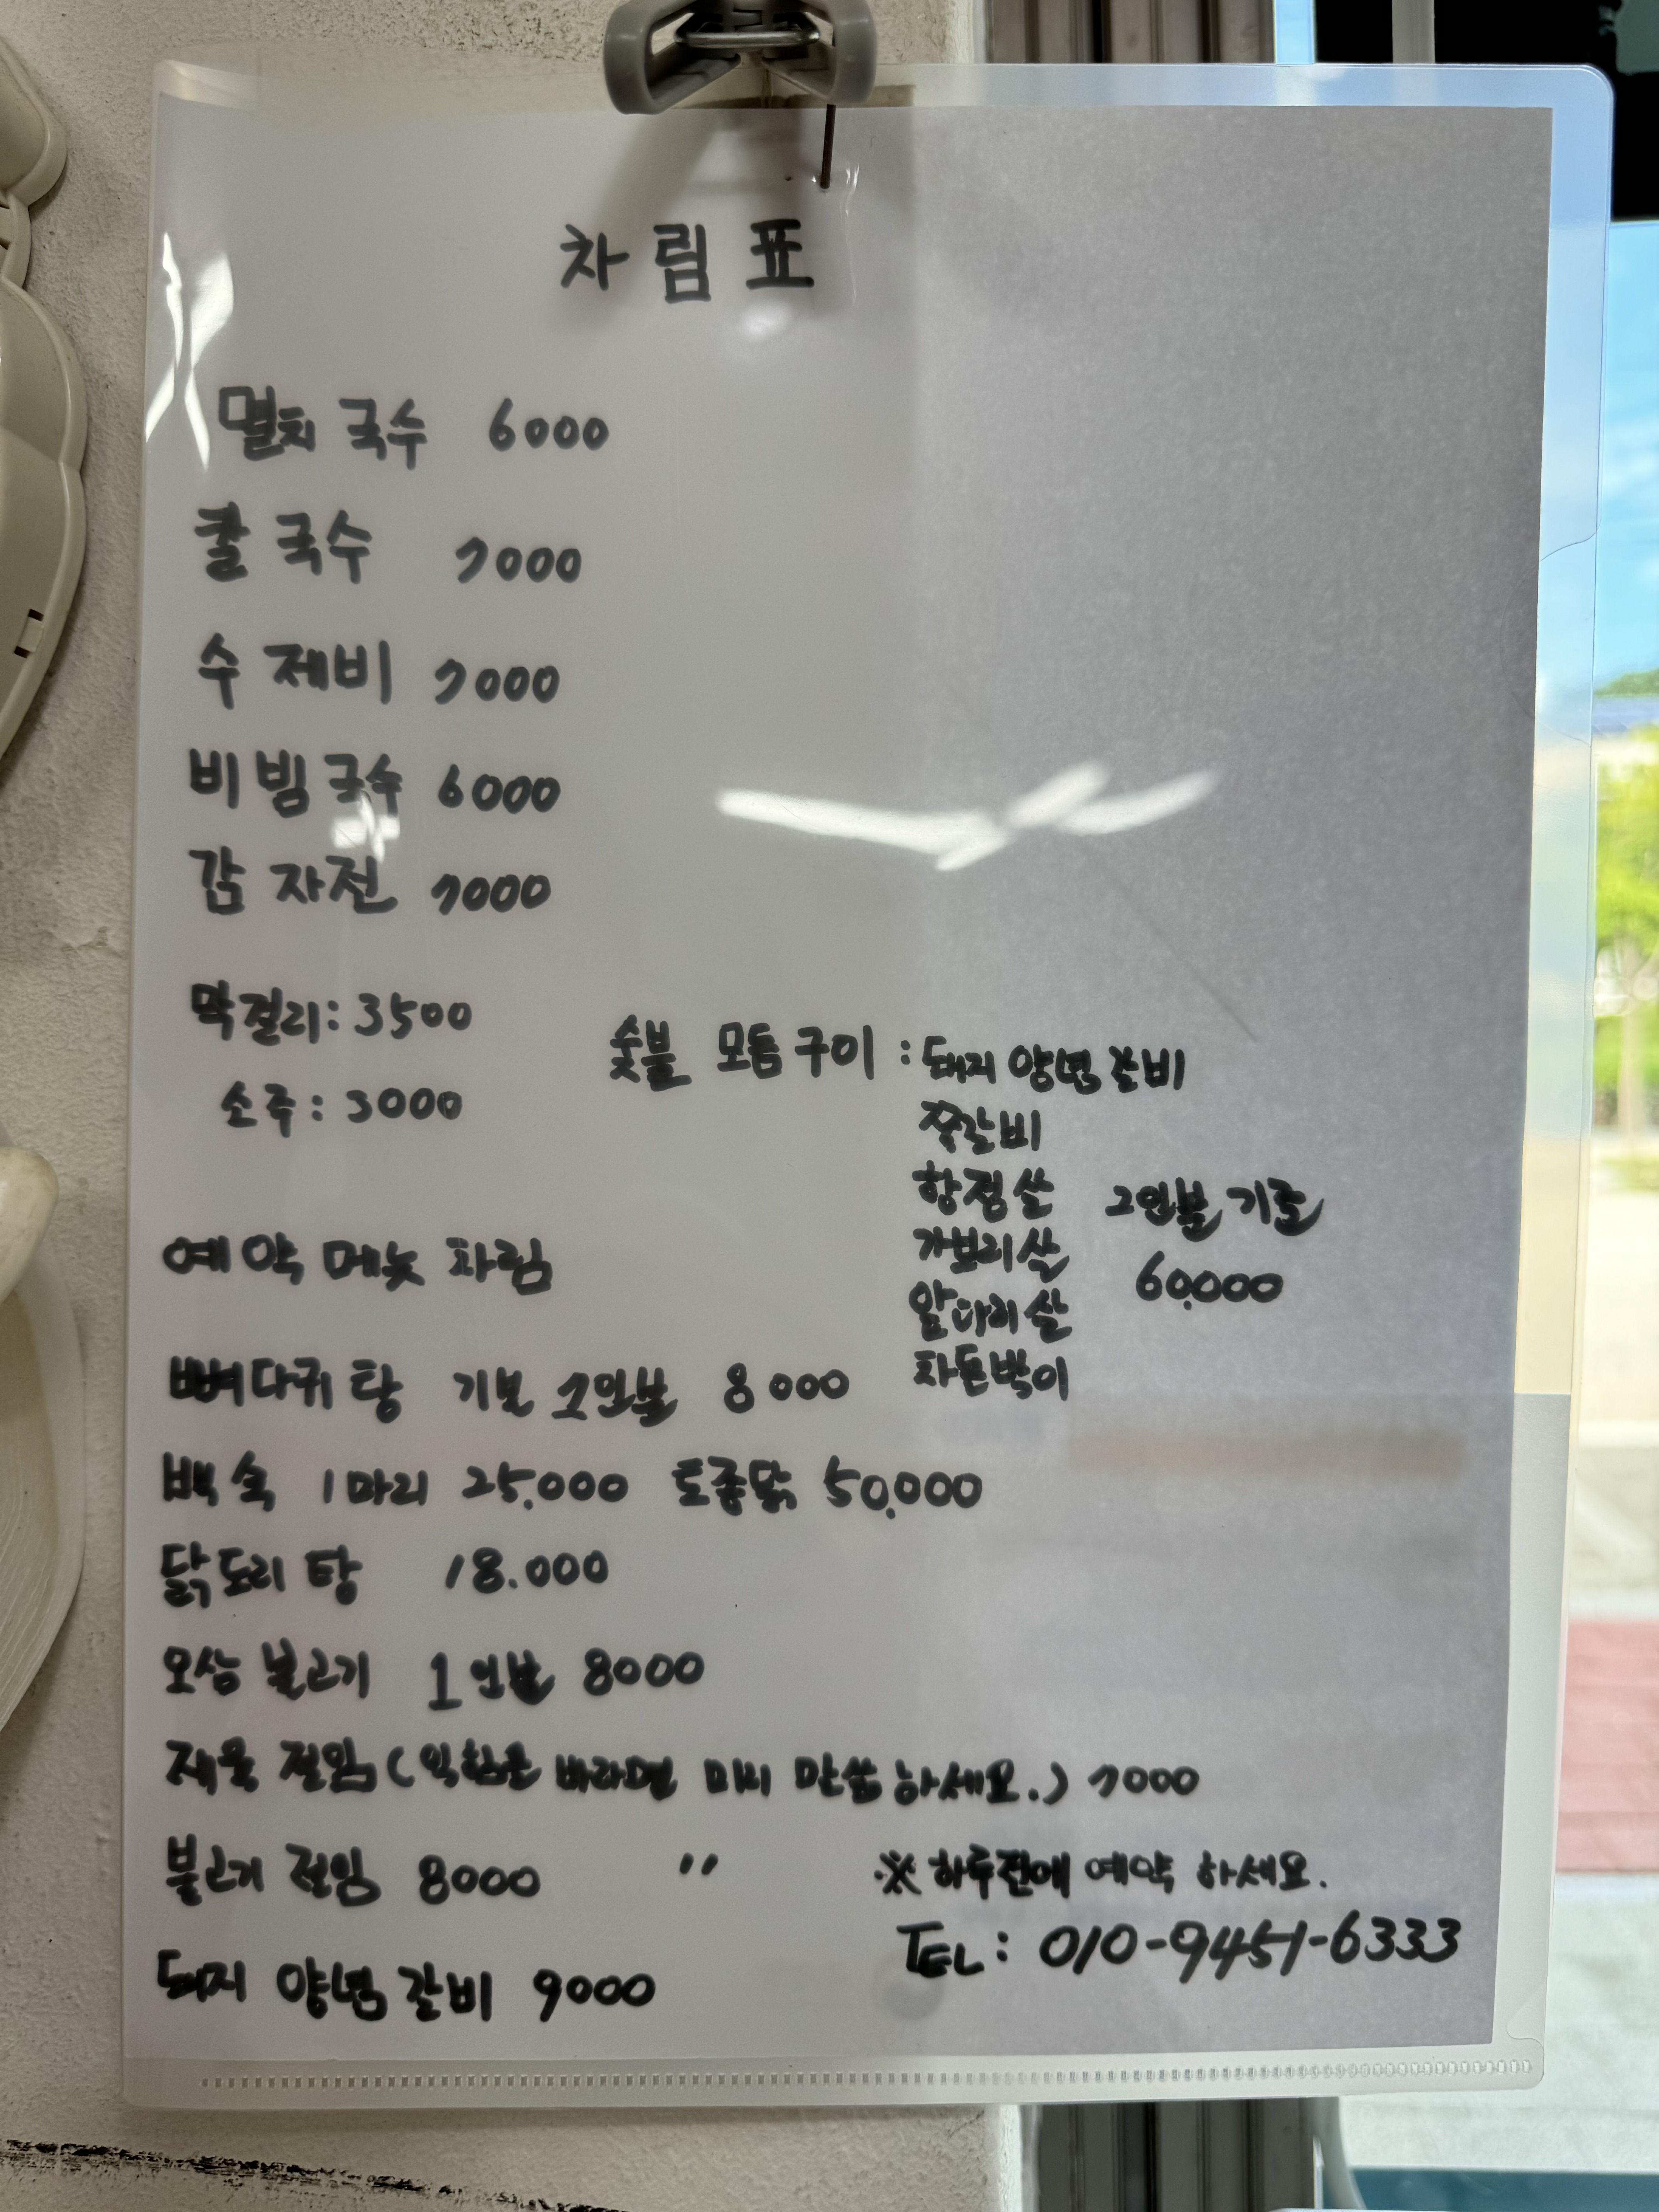 차림표
멸치국수 6000
칼국수 7000
수제비 7000
비빔국수 6000
감자전 7000
막걸리: 3500
소주: 3000
숯불 모듬구이 : 돼지 양념 갈비
쪽갈비
항정살
가브리살
앞다리살
차돌박이
2인분 기준
60,000
예약 메뉴 차림
뼈다귀탕 기본 1인분 8000
백숙 1마리 25,000 토종닭 50,000
닭도리탕 18.000
오삼 불고기 1인분 8000
제육 절임 ( 바라면 미리 말씀 하세요.) 7000
불고기 절임 8000 〃
※ 하루전에 예약 하세요.
TEL: 010-9451-6333
돼지 양념 갈비 9000